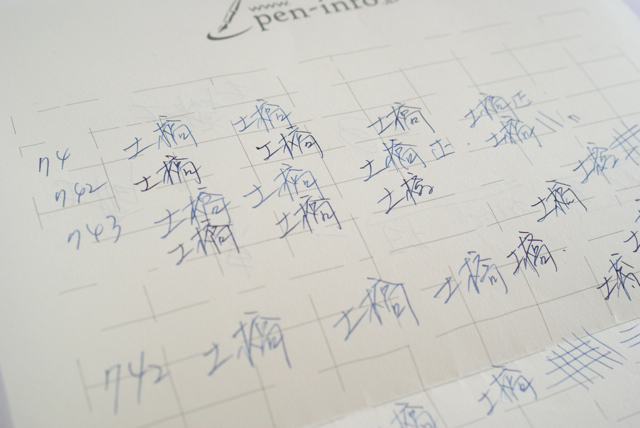 www.
pen-info.jp
74 土橋 土橋 土橋 土橋正
742 土橋 土橋 土橋正 土橋
743 土橋 土橋 土橋 土橋
土橋 土橋 土橋
742 土橋 土橋 土橋 土橋 土橋
土橋 土橋